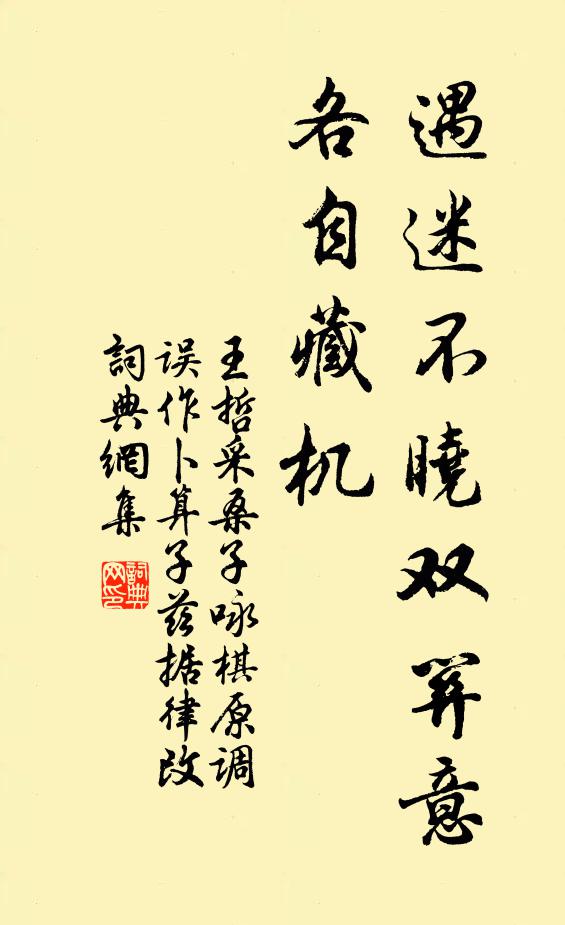 遇迷不晓双关意
各自藏机
王哲采桑子咏棋原调
误作卜算子兹据律改
詞典網集
詞典网印